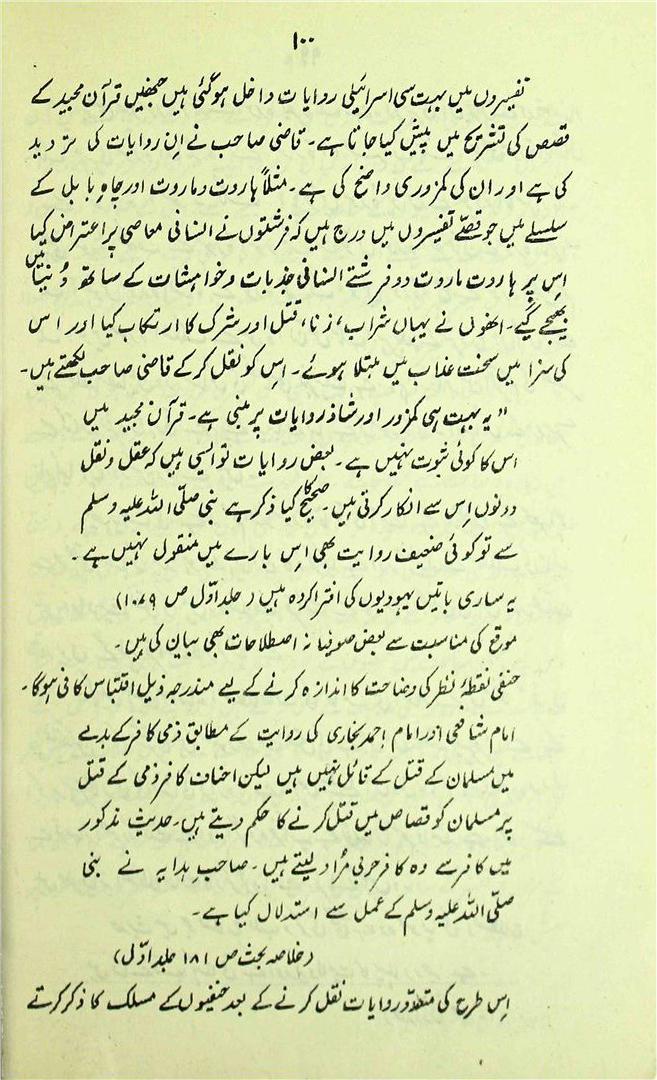 ۱۰۰
تفسیروں میں بہت سی اسرائیلی روایات داخل ہوگئی ہیں جنھیں قرآن مجید کے
قصص کی تشریح میں پیش کیا جاتا ہے۔ قاضی صاحب نے ان روایات کی تردید
کی ہے اور ان کی کمزوری واضح کی ہے۔ مثلاً ہاروت وماروت اور چاہِ بابل کے
سلسلے میں جو قصّے تفسیروں میں درج ہیں کہ فرشتوں نے انسانی معاصی پر اعتراض کیا
اس پر ہاروت ماروت دو فرشتے انسانی جذبات وخواہشات کے ساتھ دُنیا میں
بھیجے گیے۔ انھوں نے یہاں شراب، زنا، قتل اور شرک کا ارتکاب کیا اور اس
کی سزا میں سخت عذاب میں مبتلا ہوئے۔ اس کو نقل کرکے قاضی صاحب لکھتے ہیں۔
"یہ بہت ہی کمزور اور شاذ روایات پر مبنی ہے۔ قرآن مجید میں
اس کا کوئی ثبوت نہیں ہے۔ بعض روایات تو ایسی ہیں کہ عقل ونقل
دونوں اِس سے انکار کرتی ہیں۔ صحیح کا کیا ذکر ہے نبی صلّی اللہ علیہ وسلم
سے تو کوئی ضعیف روایت بھی اس بارے میں منقول نہیں ہے۔
یہ ساری باتیں یہودیوں کی افترا کردہ ہیں (جلد اوّل ص ۱۰۷۹)
موقع کی مناسبت سے بعض صوفیانہ اصطلاحات بھی بیان کی ہیں۔
حنفی نقطۂ نظر کی وضاحت کا اندازہ کرنے کے لیے مندرجہ ذیل اقتباس کافی ہوگا۔
امام شافعی اور امام احمد بخاری کی روایت کے مطابق ذمی کافر کے بدلے
میں مسلمان کے قتل کے قائل نہیں ہیں لیکن احناف کافر ذمی کے قتل
پر مسلمان کو قصاص میں قتل کرنے کا حکم دیتے ہیں۔ حدیث مذکور
میں کافر سے وہ کافر حربی مُراد لیتے ہیں۔ صاحبِ ہدایہ نے نبی
صلّی اللہ علیہ وسلم کے عمل سے استدلال کیا ہے۔
(خلاصہ بحث ص ۱۸۱ جلد اوّل)
اِس طرح کی متعدّد روایات نقل کرنے کے بعد حنفیوں کے مسلک کا ذکر کرتے